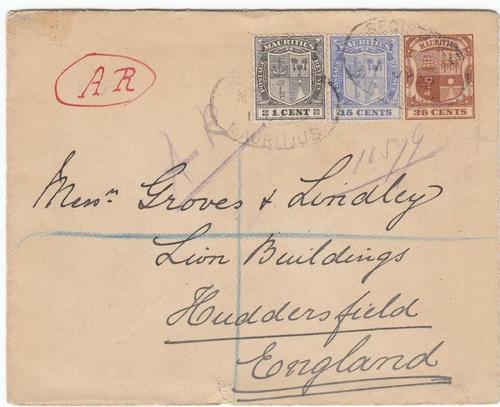 A R
MAURITIUS
POSTAGE
REVENUE
1 CENT
MAURITIUS
15 CENTS
MAURITIUS
36 CENTS
MAURITIUS
A R
11579
Messrs Groves & Lindley
Lion Buildings
Huddersfield
England